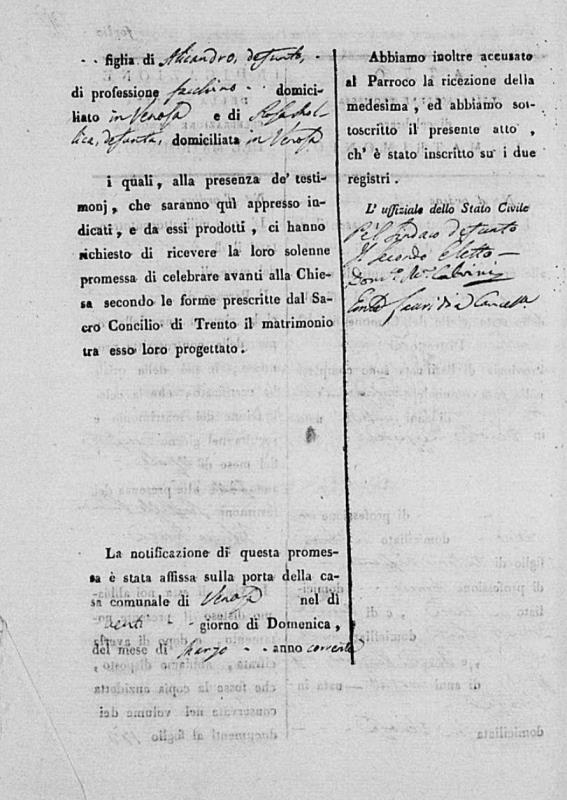 figlia di Alicandro, defunto,
di professione facchino domici-
liato in Venosa e di Rosa
defunta, domiciliata in Venosa
i quali, alla presenza de' testi-
monj, che saranno quì appresso in-
dicati, e da essi prodotti, ci hanno
richiesto di ricevere la loro solenne
promessa di celebrare avanti alla Chie-
sa secondo le forme prescritte dal Sa-
cro Concilio di Trento il matrimonio
tra esso loro progettato.
La notificazione di questa promes-
sa è stata affissa sulla porta della ca-
sa comunale di Venosa nel dì
venti giorno di Domenica,
del mese di Marzo anno corrente
Abbiamo inoltre accusato
al Parroco la ricezione della
medesima, ed abbiamo sot-
toscritto il presente atto,
ch' è stato inscritto su i due
registri.
L' uffiziale dello Stato Civile
Pel Sindaco defunto
Il secondo Eletto